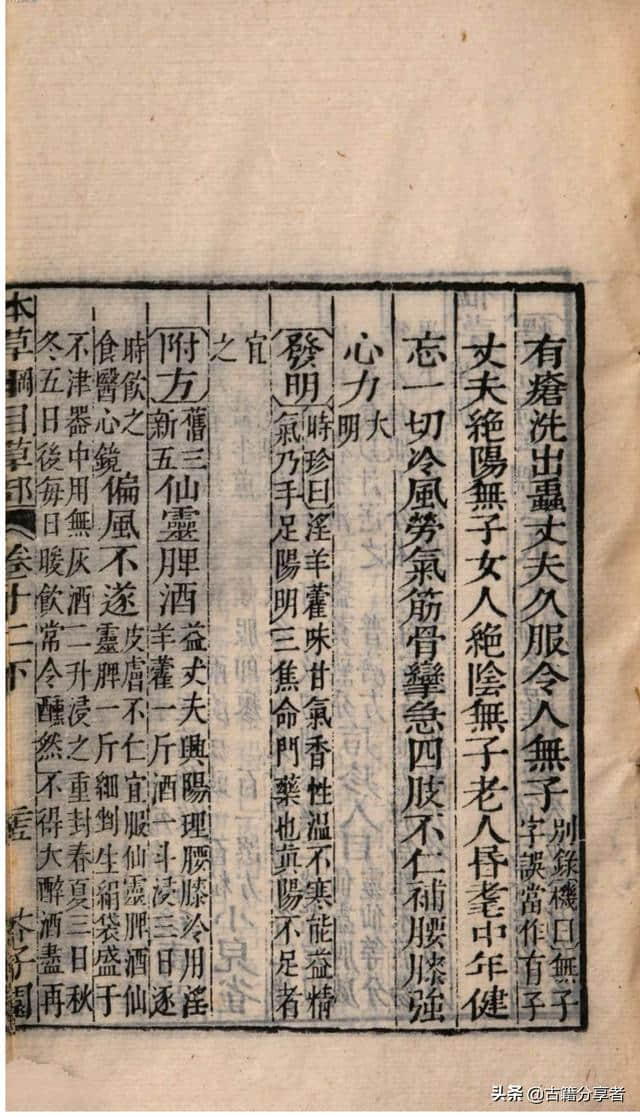 有瘡洗出蟲丈夫久服令人無子別錄機曰無子字誤當作有子
丈夫絕陽無子女人絕陰無子老人昏耄中年健
忘一切冷風勞氣筋骨攣急四肢不仁補腰膝強
心力大明
發明時珍曰淫羊藿味甘氣香性溫不寒能益精
氣乃手足陽明三焦命門藥也眞陽不足者
宜
之
附方舊三新五仙靈脾酒益丈夫興陽理腰膝冷用淫羊藿一斤酒一斗浸三日逐
時飲之食醫心鏡偏風不遂皮膚不仁宜服仙靈脾酒仙靈脾一斤細剉生絹袋盛于
不津器中用無灰酒二升浸之重封春夏三日秋
冬五日後每日暖飲常令醺然不得大醉酒盡再
本草綱目草部 卷十二下 芥子園
头条 @古籍分享者